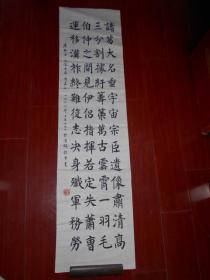 諸葛大名垂宇宙宗臣遺像肅清高
三分割據紆籌策萬古雲霄一羽毛
伯仲之間見伊呂指揮若定失蕭曹
運移漢祚終難復志決身殲軍務勞